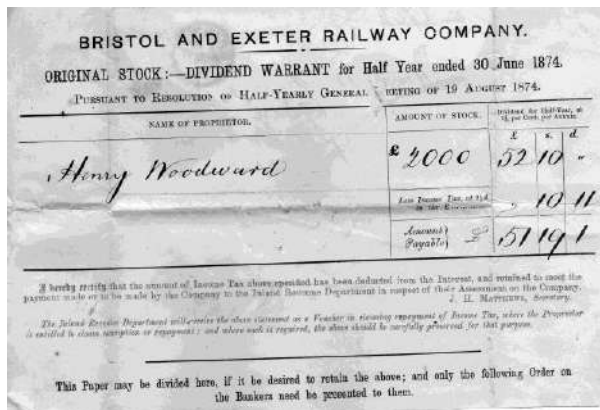 BRISTOL AND EXETER RAILWAY COMPANY.
ORIGINAL STOCK:—DIVIDEND WARRANT for Half Year ended 30 June 1874.
PURSUANT TO RESOLUTION OF HALF-YEARLY GENERAL EETING OF 19 AUGUST 1874.
NAME OF PROPRIETOR. AMOUNT OF STOCK. Dividend for Half-Year, at per Cent. per Annum.
£ s. d.
Henry Woodward £ 2000 52 10 "
Less Income Tax, at 10 11
Amount Payable £ 51 19 1
I hereby certify that the amount of Income Tax above specified has been deducted from the Interest, and retained to meet the
payment made or to be made by the Company to the Inland Revenue Department in respect of their Assessment on the Company.
J. H. MATTHEWS, Secretary.
The Inland Revenue Department will receive the above statement as a Voucher in claiming repayment of Income Tax, where the Proprietor
is entitled to claim exemption or repayment; and where such is required, the above should be carefully preserved for that purpose.
This Paper may be divided here, if it be desired to retain the above; and only the following Order on
the Bankers need be presented to them.